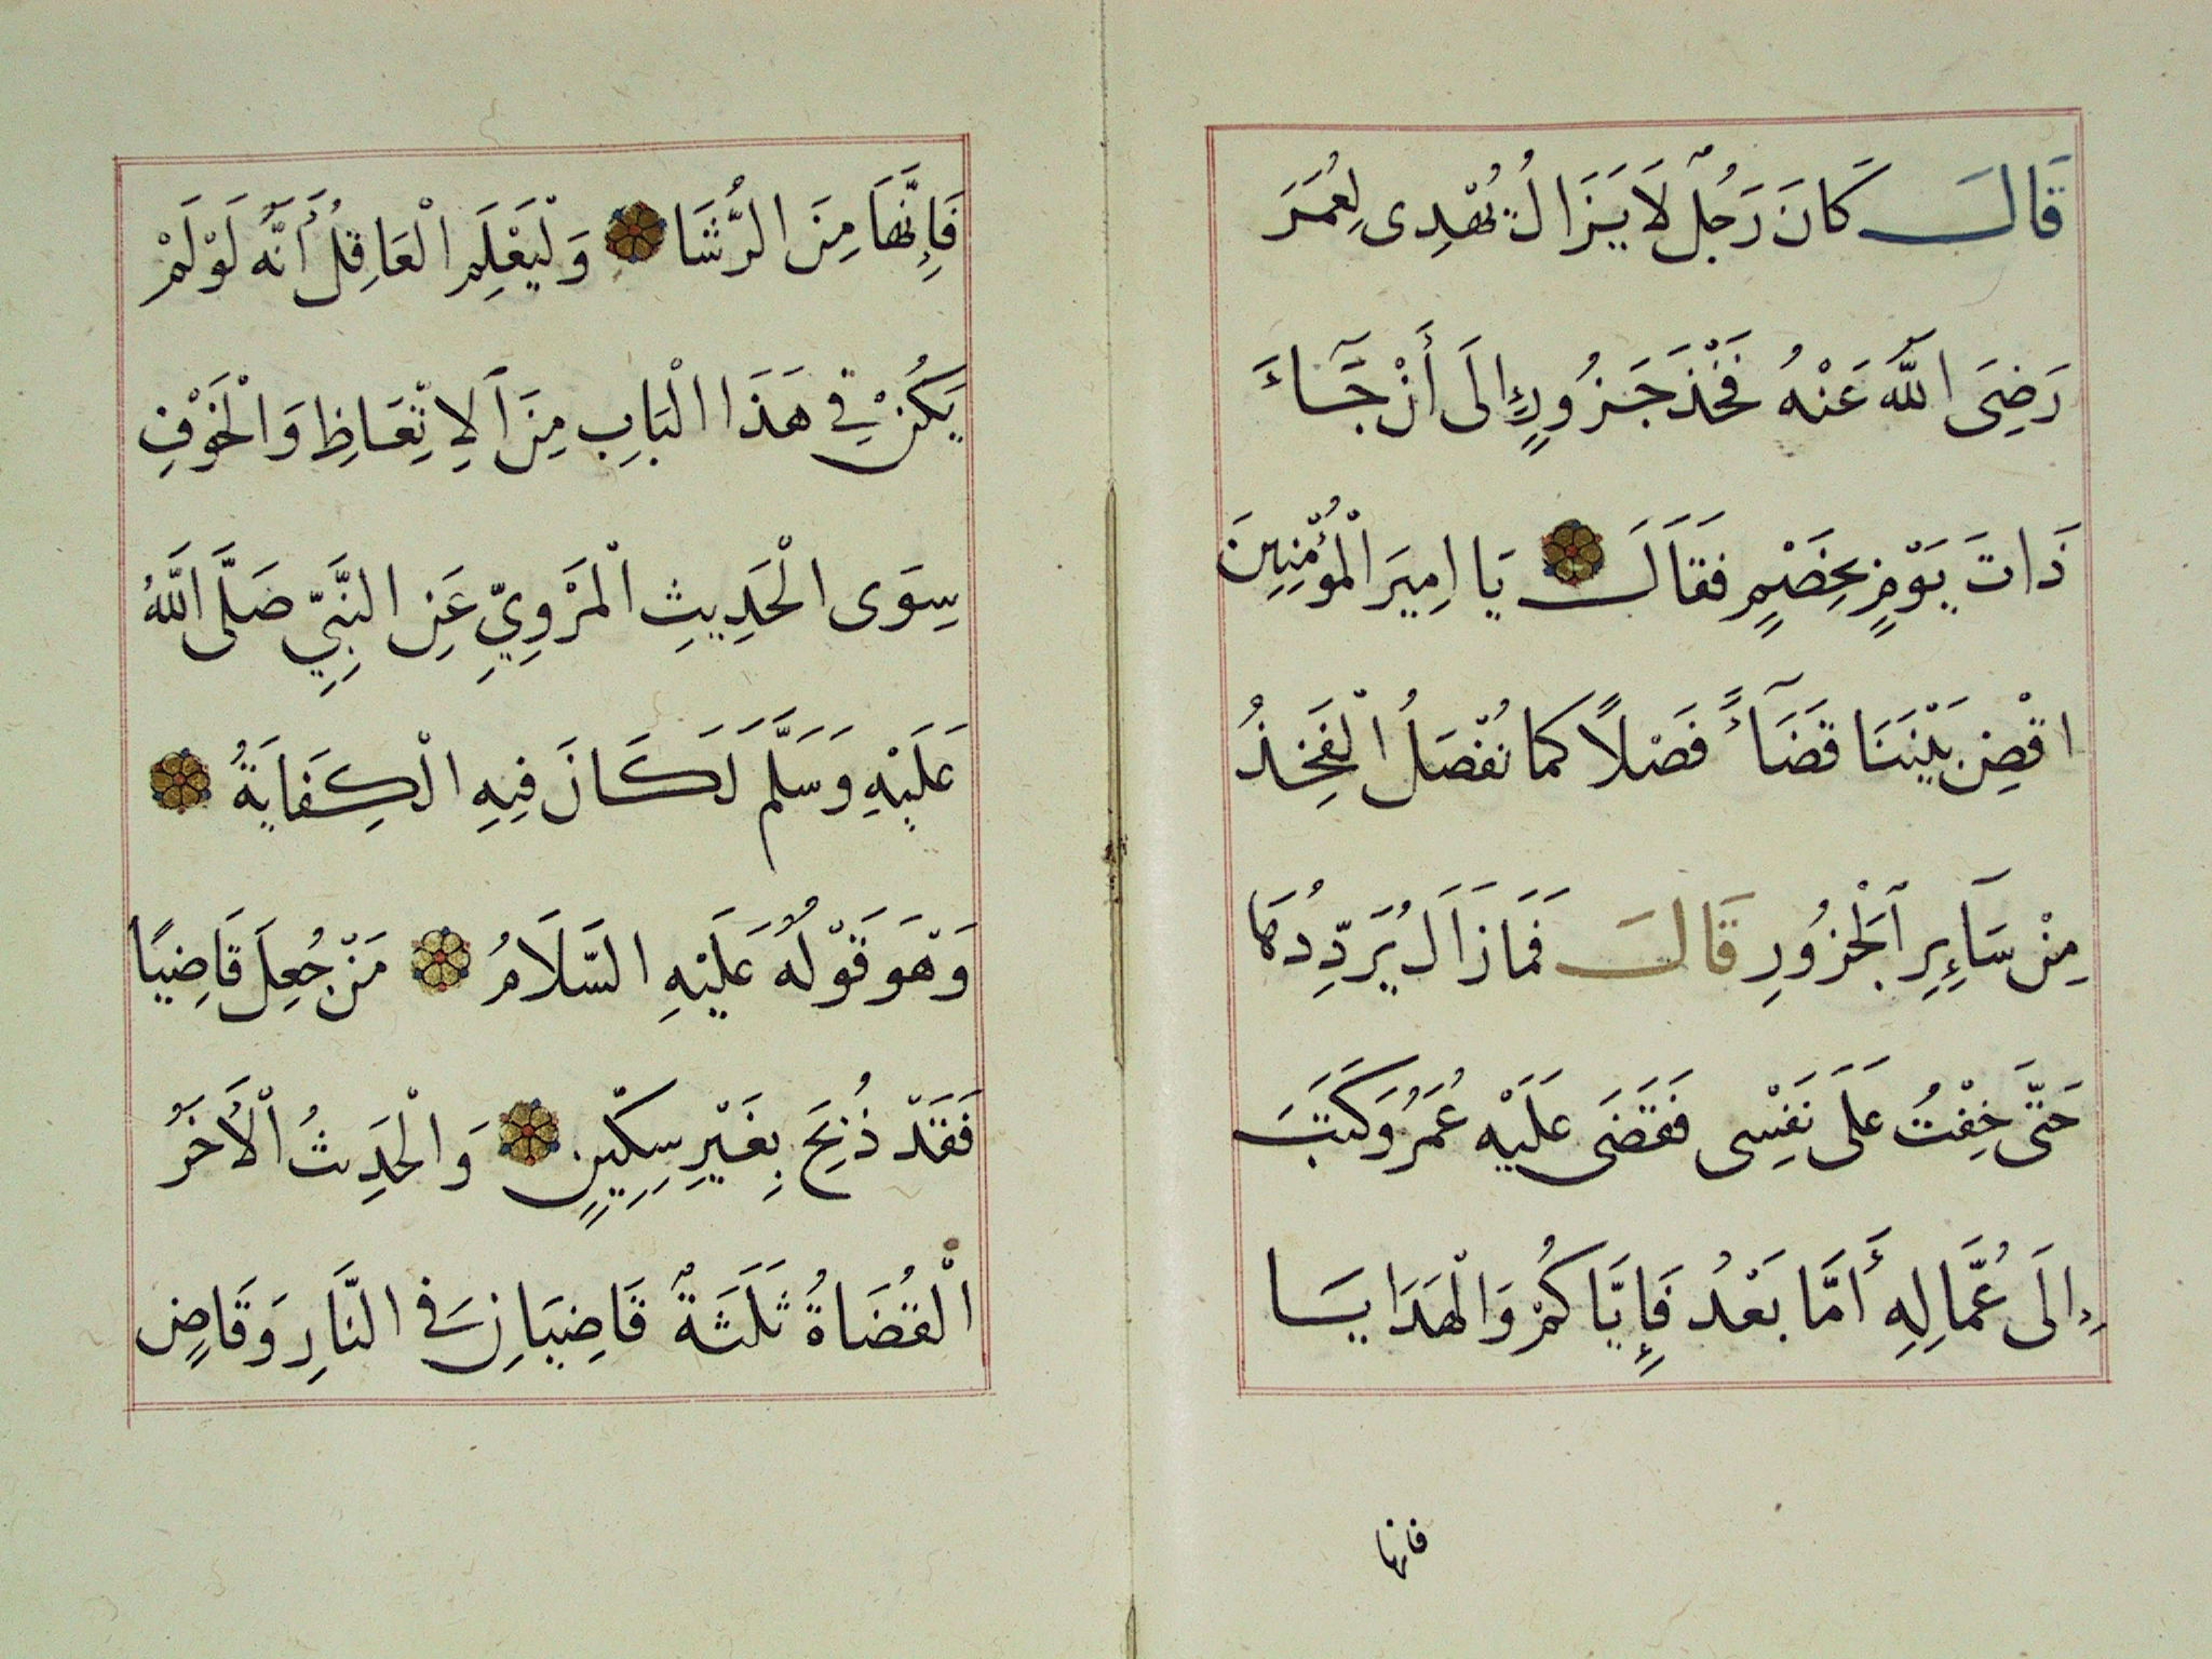 قَالَ كَانَ رَجُلٌ لَا يَزَالُ يُهْدِى لِعُمَرَ
رَضِىَ اللّٰهُ عَنْهُ فَخْذَ جَزُورٍ إِلَى أَنْ جَآءَ
ذَاتَ يَوْمٍ بِخَصْمٍ فَقَالَ يَا امِيرَ الْمُؤْمِنِينَ
اقْضِ بَيْنَنَا قَضَآءً فَصْلًا كما تُفْصَلُ الْفَخِذُ
مِنْ سَآءِرِ اَلْجَزُورِ قَالَ فَمَا زَالَ يُرَدِّدُهَا
حَتَّى خِفْتُ عَلَى نَفْسِى فَقَضَى عَلَيْهِ عُمَرُ وَكَتَبَ
إِلَى عُمَّالِهِ أَمَّا بَعْدُ فَإِيَّاكُمْ وَالْهَدَايَا
فانها
فَإِنَّهَا مِنَ الرُّشَا وَلْيَعْلَمِ الْعَاقِلُ أَنَّهُ لَوْ لَمْ
يَكُنْ فِي هَذَا الْبَابِ مِنَ اَلاِتِّعَاظِ وَالْخَوْفِ
سِوَى الْحَدِيثِ الْمَرْوِيِّ عَنِ النَّبِيِّ صَلَّى اللّٰهُ
عَلَيْهِ وَسَلَّمَ لَكَانَ فِيهِ الْكِفَايَةُ
وَهْوَ قَوْلُهُ عَلَيْهِ السَّلَامُ مَنْ جُعِلَ قَاضِيًا
فَقَدْ ذُبِحَ بِغَيْرِ سِكِّينٍ وَالْحَدِيثُ الْأَخَرُ
الْقُضَاةُ ثَلَثَةٌ قَاضِيَانِ فِى النَّارِ وَقَاضٍ